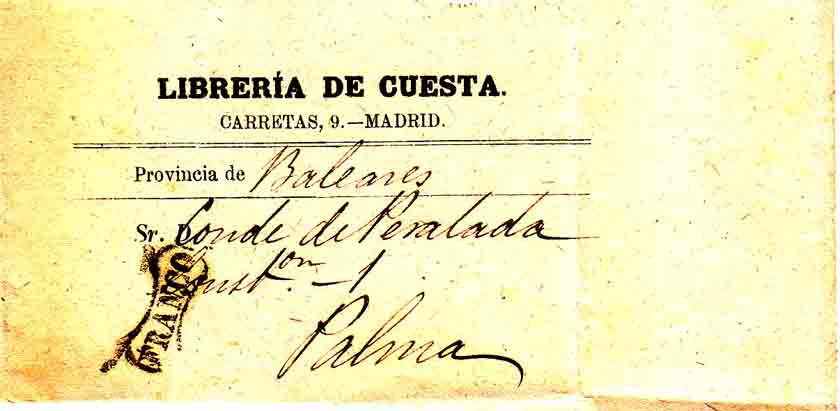 LIBRERÍA DE CUESTA.
CARRETAS, 9.—MADRID.
Provincia de Baleares
Sr. Conde de Peralada
Const.on - 1
Palma
FRANCO